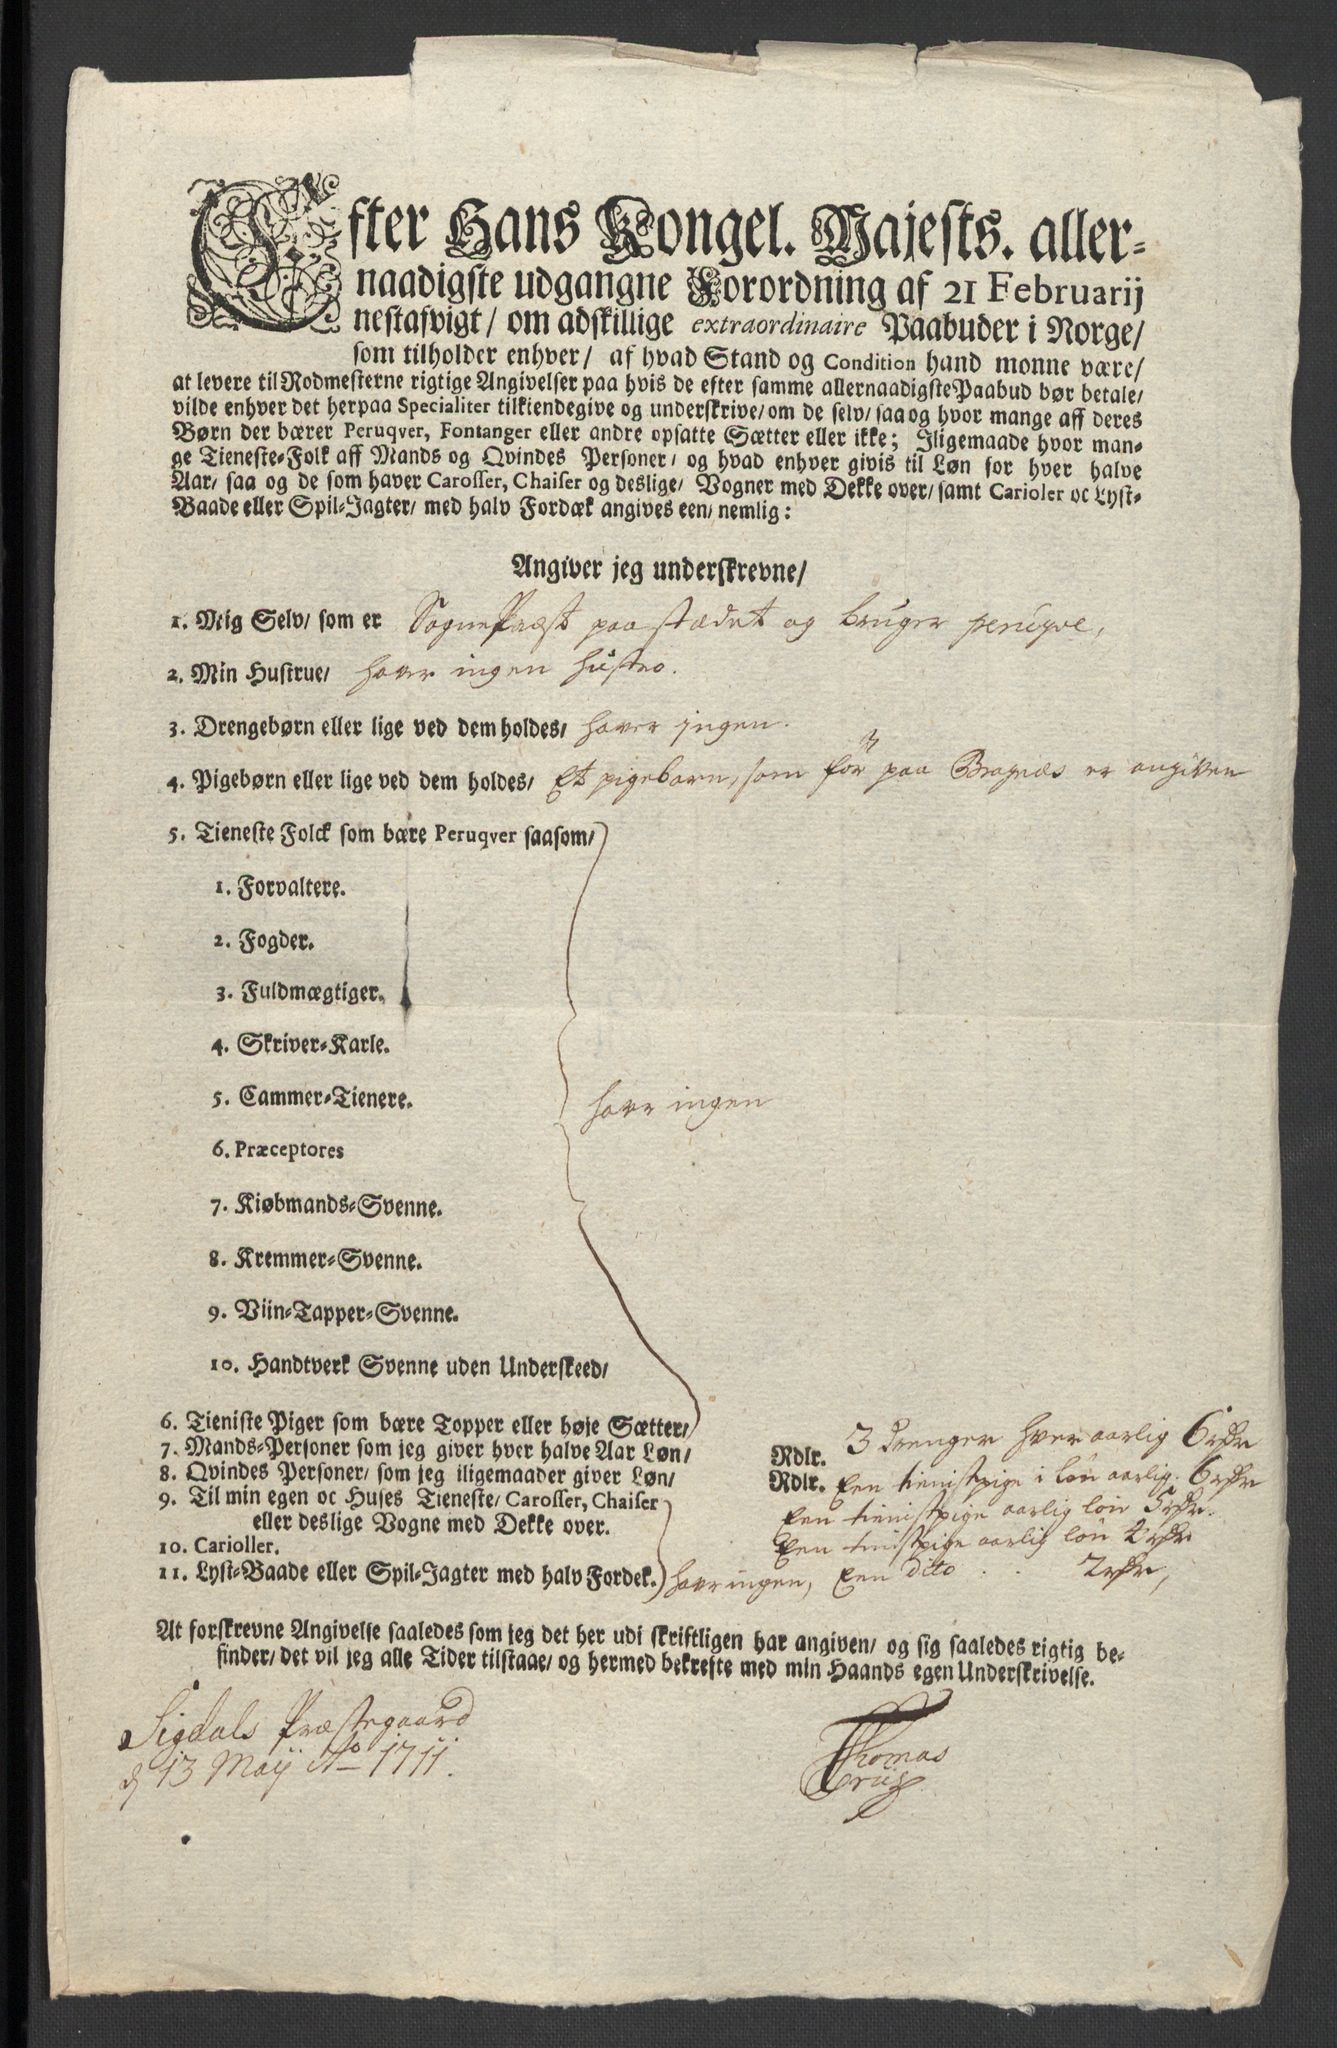 Efter Hans Kongel. Majests. aller-
naadigste udgangne Forordning af 21 Februarij
nestafvigt/ om adskillige extraordinaire Paabuder i Norge/
som tilholder enhver/ af hvad Stand og Condition hand monne være/
at levere til Rodmesterne rigtige Angivelser paa hvis de efter samme allernaadigste Paabud bør betale/
vilde enhver det herpaa Specialiter tilkiendegive og underskrive/ om de selv/ saa og hvor mange aff deres
Børn der bærer Peruqver, Fontanger eller andre opsatte Sætter eller ikke; Iligemaade hvor man-
ge Tieneste-Folk aff Mands og Qvindes Personer/ og hvad enhver givis til Løn for hver halve
Aar/ saa og de som haver Carosser, Chaiser og deslige/ Vogner med Dekke over/ samt Carioler oc Lyst-
Baade eller Spil-Jagter/ med halv Fordæk angives een/ nemlig:
Angiver jeg underskrevne/
1. Mig Selv/ som er SognePræst paa stædet og bruger peruqve,
2. Min Hustrue/ haver ingen hustro.
3. Drengebørn eller lige ved dem holdes/ haver jngen.
4. Pigebørn eller lige ved dem holdes/ Et pigebarn, som før paa Bragnæs er angiven
5. Tieneste Folck som bære Peruqver saasom/
1. Forvaltere.
2. Fogder.
3. Fuldmægtiger.
4. Skriver-Karle.
5. Cammer-Tienere. haver ingen
6. Præceptores
7. Kiøbmands-Svenne.
8. Kremmer-Svenne.
9. Viin-Tapper-Svenne.
10. Handtverk Svenne uden Underskeed/
6. Tieniste Piger som bære Topper eller høje Sætter/
7. Mands-Personer som jeg giver hver halve Aar Løn/ Rdlr. 3 drenger hver aarlig 6 rdr
8. Qvindes Personer/ som jeg iligemaader giver Løn/ Rdlr. Een tienistpige i løn aarlig. 6 rdr
9. Til min egen oc Huses Tieneste/ Carosser, Chaiser Een tienistpige aarlig løn 5 rdr.
eller deslige Vogne med Dekke over. Een tinistpige aarlig løn 2 rdr
10. Carioller.
11. Lyst-Baade eller Spil-Jagter med halv Fordek. haver ingen, Een dito . . 2 rdr,
At forskrevne Angivelse saaledes som jeg det her udi skriftligen har angiven/ og sig saaledes rigtig be-
finder/ det vil jeg alle Tider tilstaae/ og hermed bekrefte med min Haands egen Underskrivelse.
Sigdals Præstegaard
d 13 Maij Ao 1711.
Thomas
Cruj